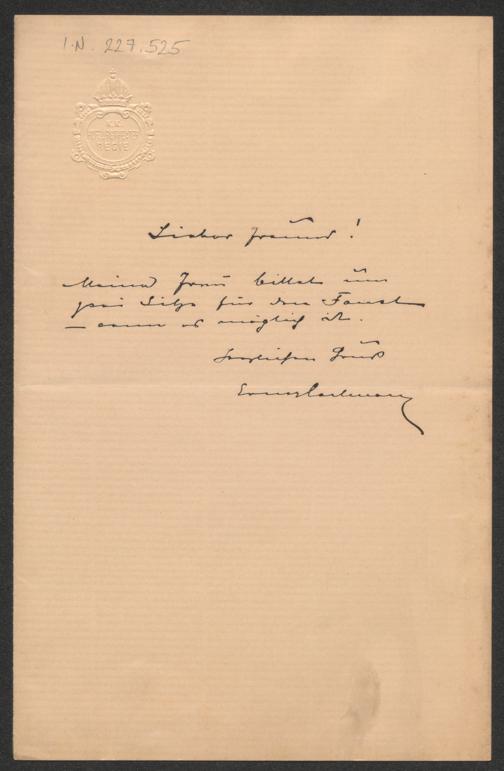 I.N. 227.525
K.K.
HOFBURGTHEATER
REGIE
Lieber Freund!
Meine Frau bittet um
zwei Sitze für den Faust
– wenn es möglich ist.
Herzlichen Gruß
Ernst Hartmann